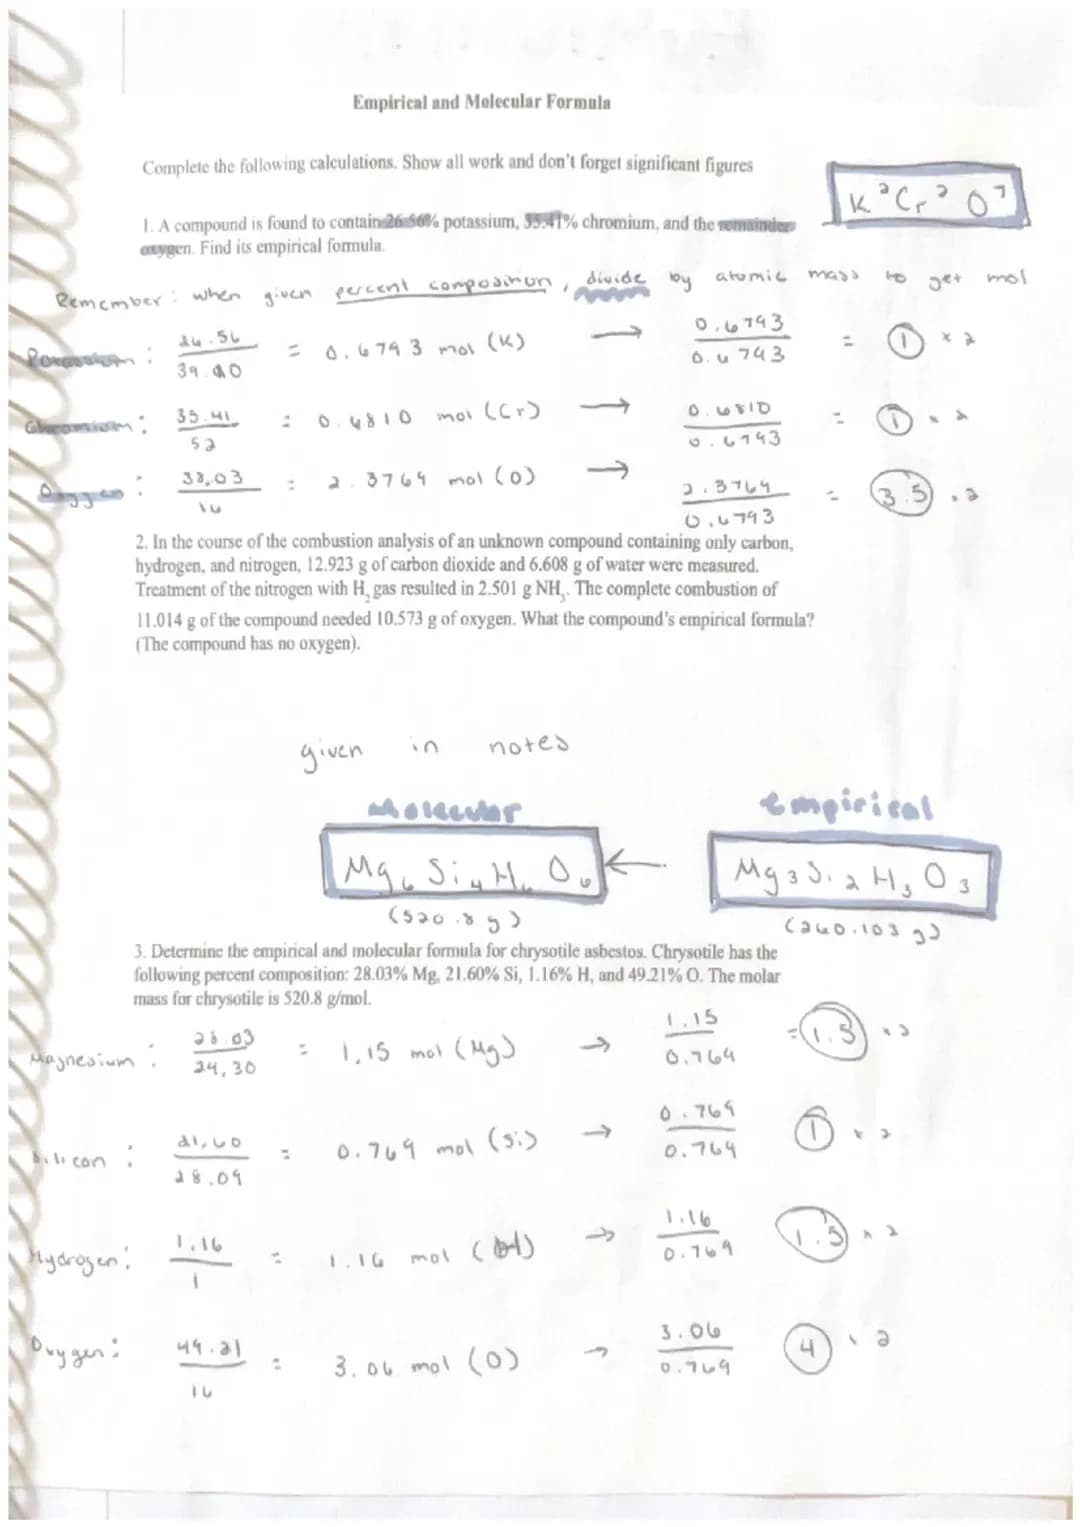 Empirical and Molecular Formula
Complete the following calculations. Show all work and don't forget significant figures
K²Cr²O⁷
1. A compound is found to contain 26.56% potassium, 35.41% chromium, and the remainder
oxygen. Find its empirical formula.
Remember: when given percent composition, divide by atomic mass to get mol
Potassium: 26.56 / 39.10 = 0.6793 mol (K) → 0.6793 / 0.6793 = 1 x 2
Chromium: 35.41 / 52 = 0.6810 mol (Cr) → 0.6810 / 0.6793 = 1 x 2
Oxygen: 38.03 / 16 = 2.3769 mol (O) → 2.3769 / 0.6793 = 3.5 x 2
2. In the course of the combustion analysis of an unknown compound containing only carbon,
hydrogen, and nitrogen, 12.923 g of carbon dioxide and 6.608 g of water were measured.
Treatment of the nitrogen with H₂ gas resulted in 2.501 g NH₃. The complete combustion of
11.014 g of the compound needed 10.573 g of oxygen. What the compound's empirical formula?
(The compound has no oxygen).
given in notes
Molecular Empirical
Mg₆Si₄H₆O₆ ← Mg₃Si₂H₃O₃
(520.8 g) (260.103 g)
3. Determine the empirical and molecular formula for chrysotile asbestos. Chrysotile has the
following percent composition: 28.03% Mg, 21.60% Si, 1.16% H, and 49.21% O. The molar
mass for chrysotile is 520.8 g/mol.
Magnesium: 28.03 / 24.30 = 1.15 mol (Mg) → 1.15 / 0.769 = 1.5 x 2
Silicon: 21.60 / 28.09 = 0.769 mol (Si) → 0.769 / 0.769 1 x 2
Hydrogen: 1.16 / 1 = 1.16 mol (H) → 1.16 / 0.769 1.5 x 2
Oxygen: 49.21 / 16 = 3.06 mol (O) → 3.06 / 0.769 4 x 2